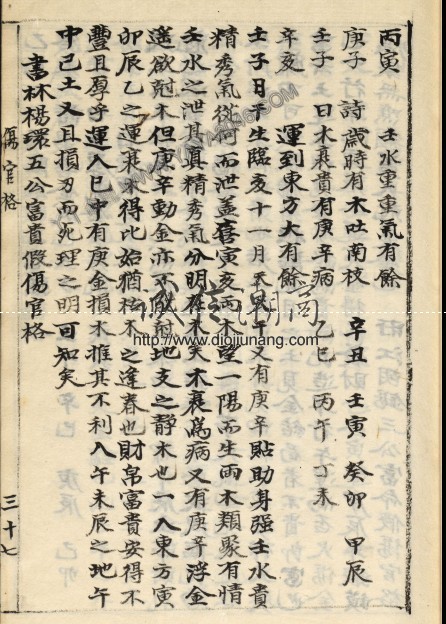 丙寅　壬水重重氣有餘
庚子　詩歲時有木吐南枝　辛丑　壬寅　癸卯　甲辰
壬子　曰木衰貴有庚辛病　乙巳　丙午　丁未
辛亥　運到東方大有餘
壬子日干生臨亥十一月又有庚辛貼助身强壬水貴
精秀氣從何而泄盖喜寅亥兩木望一陽而生兩木類聚有情
壬水之泄其真精秀氣分明在木矣木衰爲病又有庚辛浮金
遥欲尅木但庚辛動金亦不能尅地支之静木也一入東方寅
卯辰乙之運衰木得比始猶枯木之逢春也財帛富貴安得不
豐且厚乎運入巳中有庚金損木推其不利入午未辰之地午
中己土又且損刃而死理之明可知矣
書林楊環五公富貴假傷官格
傷官格
三十七
诚信潮商
www.diqjiunang.com